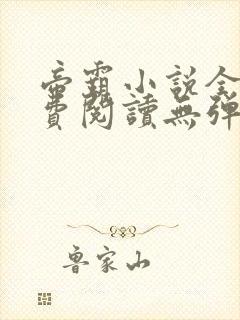 帝霸小說全
費閱讀無彈
魯家山